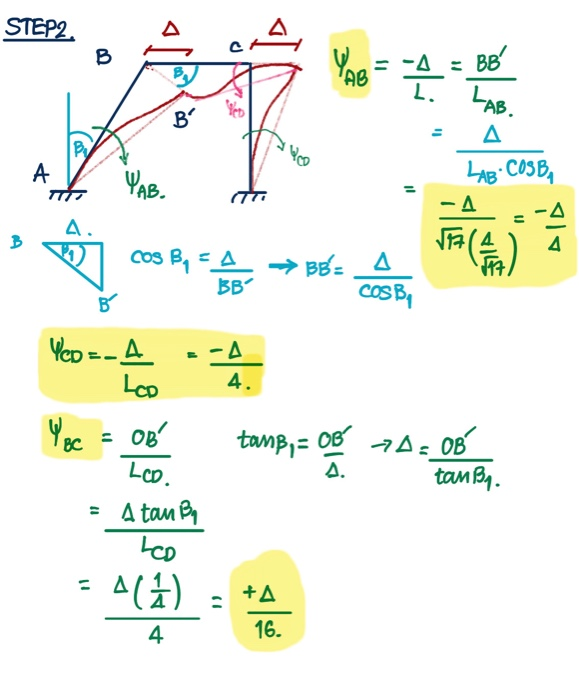 STEP2.
Δ Δ
B C
B₁
B′
ψCD
B₁
A
ψAB.
ψCD
ψAB = -Δ/L. = BB′/LAB.
= Δ/(LAB·COSB₁)
= -Δ/(√17(4/√17)) = -Δ/4
Δ.
B B₁
B′
COS B₁ = Δ/BB′ → BB′ = Δ/COSB₁
ψCD = -Δ/LCD = -Δ/4.
ψBC = OB′/LCD. tanB₁ = OB′/Δ. → Δ = OB′/tanB₁.
= Δ tan B₁/LCD
= Δ(1/4)/4 = +Δ/16.